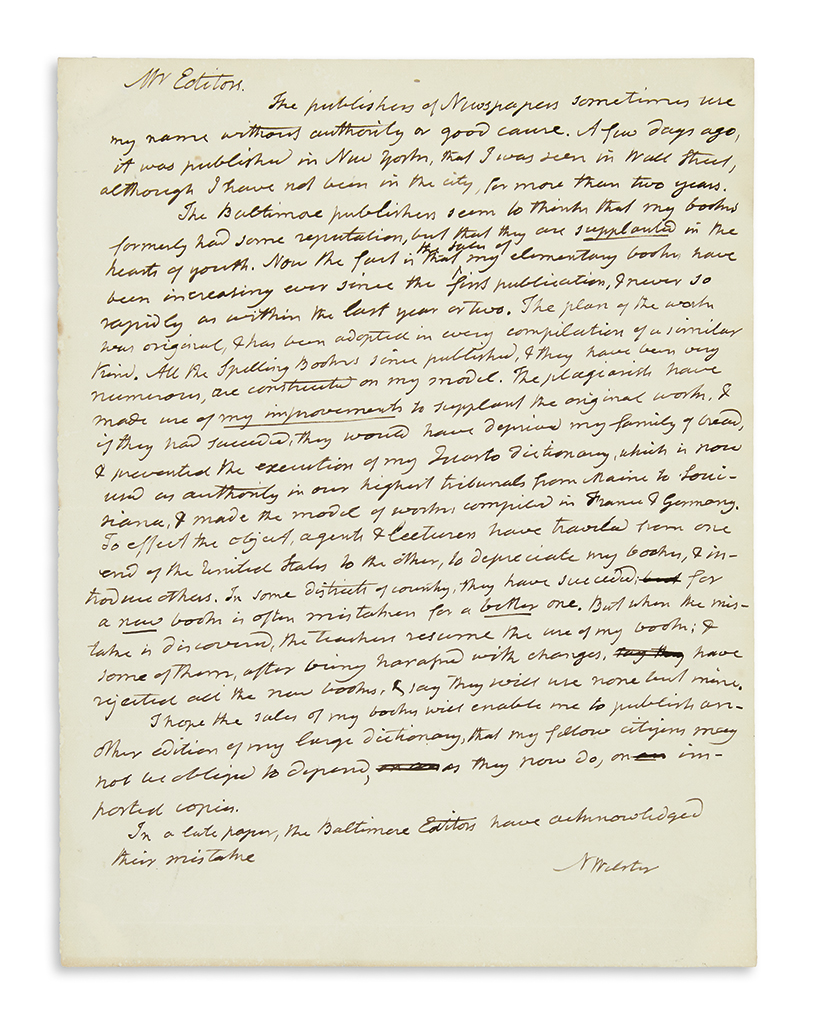 Mr Editors.
The publishers of Newspapers sometimes use
my name without authority or good cause. A few days ago,
it was published in New York, that I was seen in Wall Street,
although I have not been in the city, for more than two years.
The Baltimore publishers seem to think that my books
formerly had some reputation, but that they are supplanted in the
hearts of youth. Now the fact is that the sales of my elementary books have
been increasing ever since the first publication, & never so
rapidly as within the last year or two. The plan of the work
was original, & has been adopted in every compilation of a similar
kind. All the Spelling Books since published, & they have been very
numerous, are constructed on my model. The plagiarists have
made use of my improvements to supplant the original work, &
if they had succeeded, they would have deprived my family of bread,
& prevented the execution of my Quarto dictionary, which is now
used as authority in our highest tribunals from Maine to Loui-
siana, & made the model of works compiled in France & Germany.
To effect the object, agents & lecturers have traveled from one
end of the United States to the other, to depreciate my books, & in-
troduce others. In some districts of country, they have succeeded; but for
a new book is often mistaken for a better one. But when the mis-
take is discovered, the teachers resume the use of my book; &
some of them, after being harassed with changes, say they have
rejected all the new books, & say they will use none but mine.
I hope the sales of my books will enable me to publish an-
other edition of my large dictionary, that my fellow citizens may
not be obliged to depend, as they now do, on im-
ported copies.
In a late paper, the Baltimore Editors have acknowledged
their mistake
N Webster